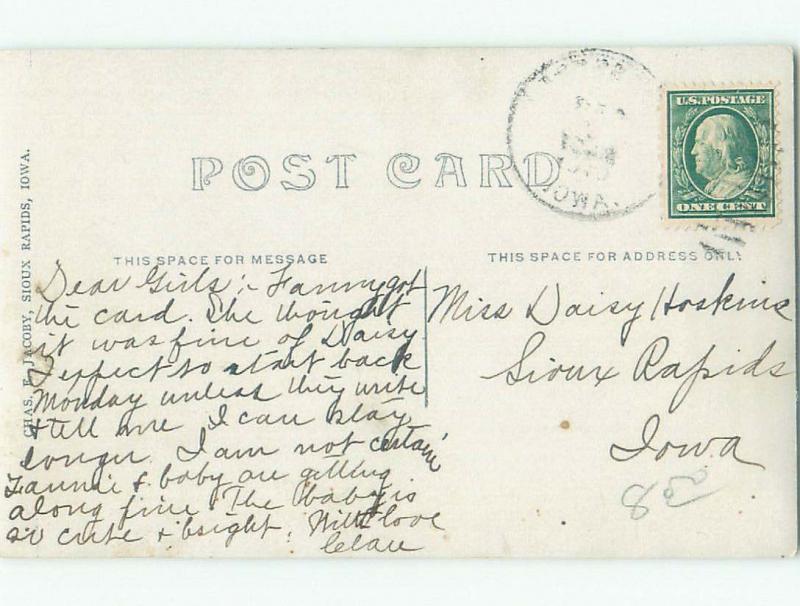 CHAS. E. JACOBY, SIOUX RAPIDS, IOWA.
POST CARD
IOWA.
U.S. POSTAGE
ONE CENT
THIS SPACE FOR MESSAGE
THIS SPACE FOR ADDRESS ONLY
Dear Girls:- Fanny got
the card. She thought
it was fine of Daisy.
I expect to start back
Monday unless they write
& tell me I can stay
longer. I am not certain
Fannie & baby are getting
along fine. The baby is
so cute & bright. With love
Miss Daisy Hoskins
Sioux Rapids
Iowa